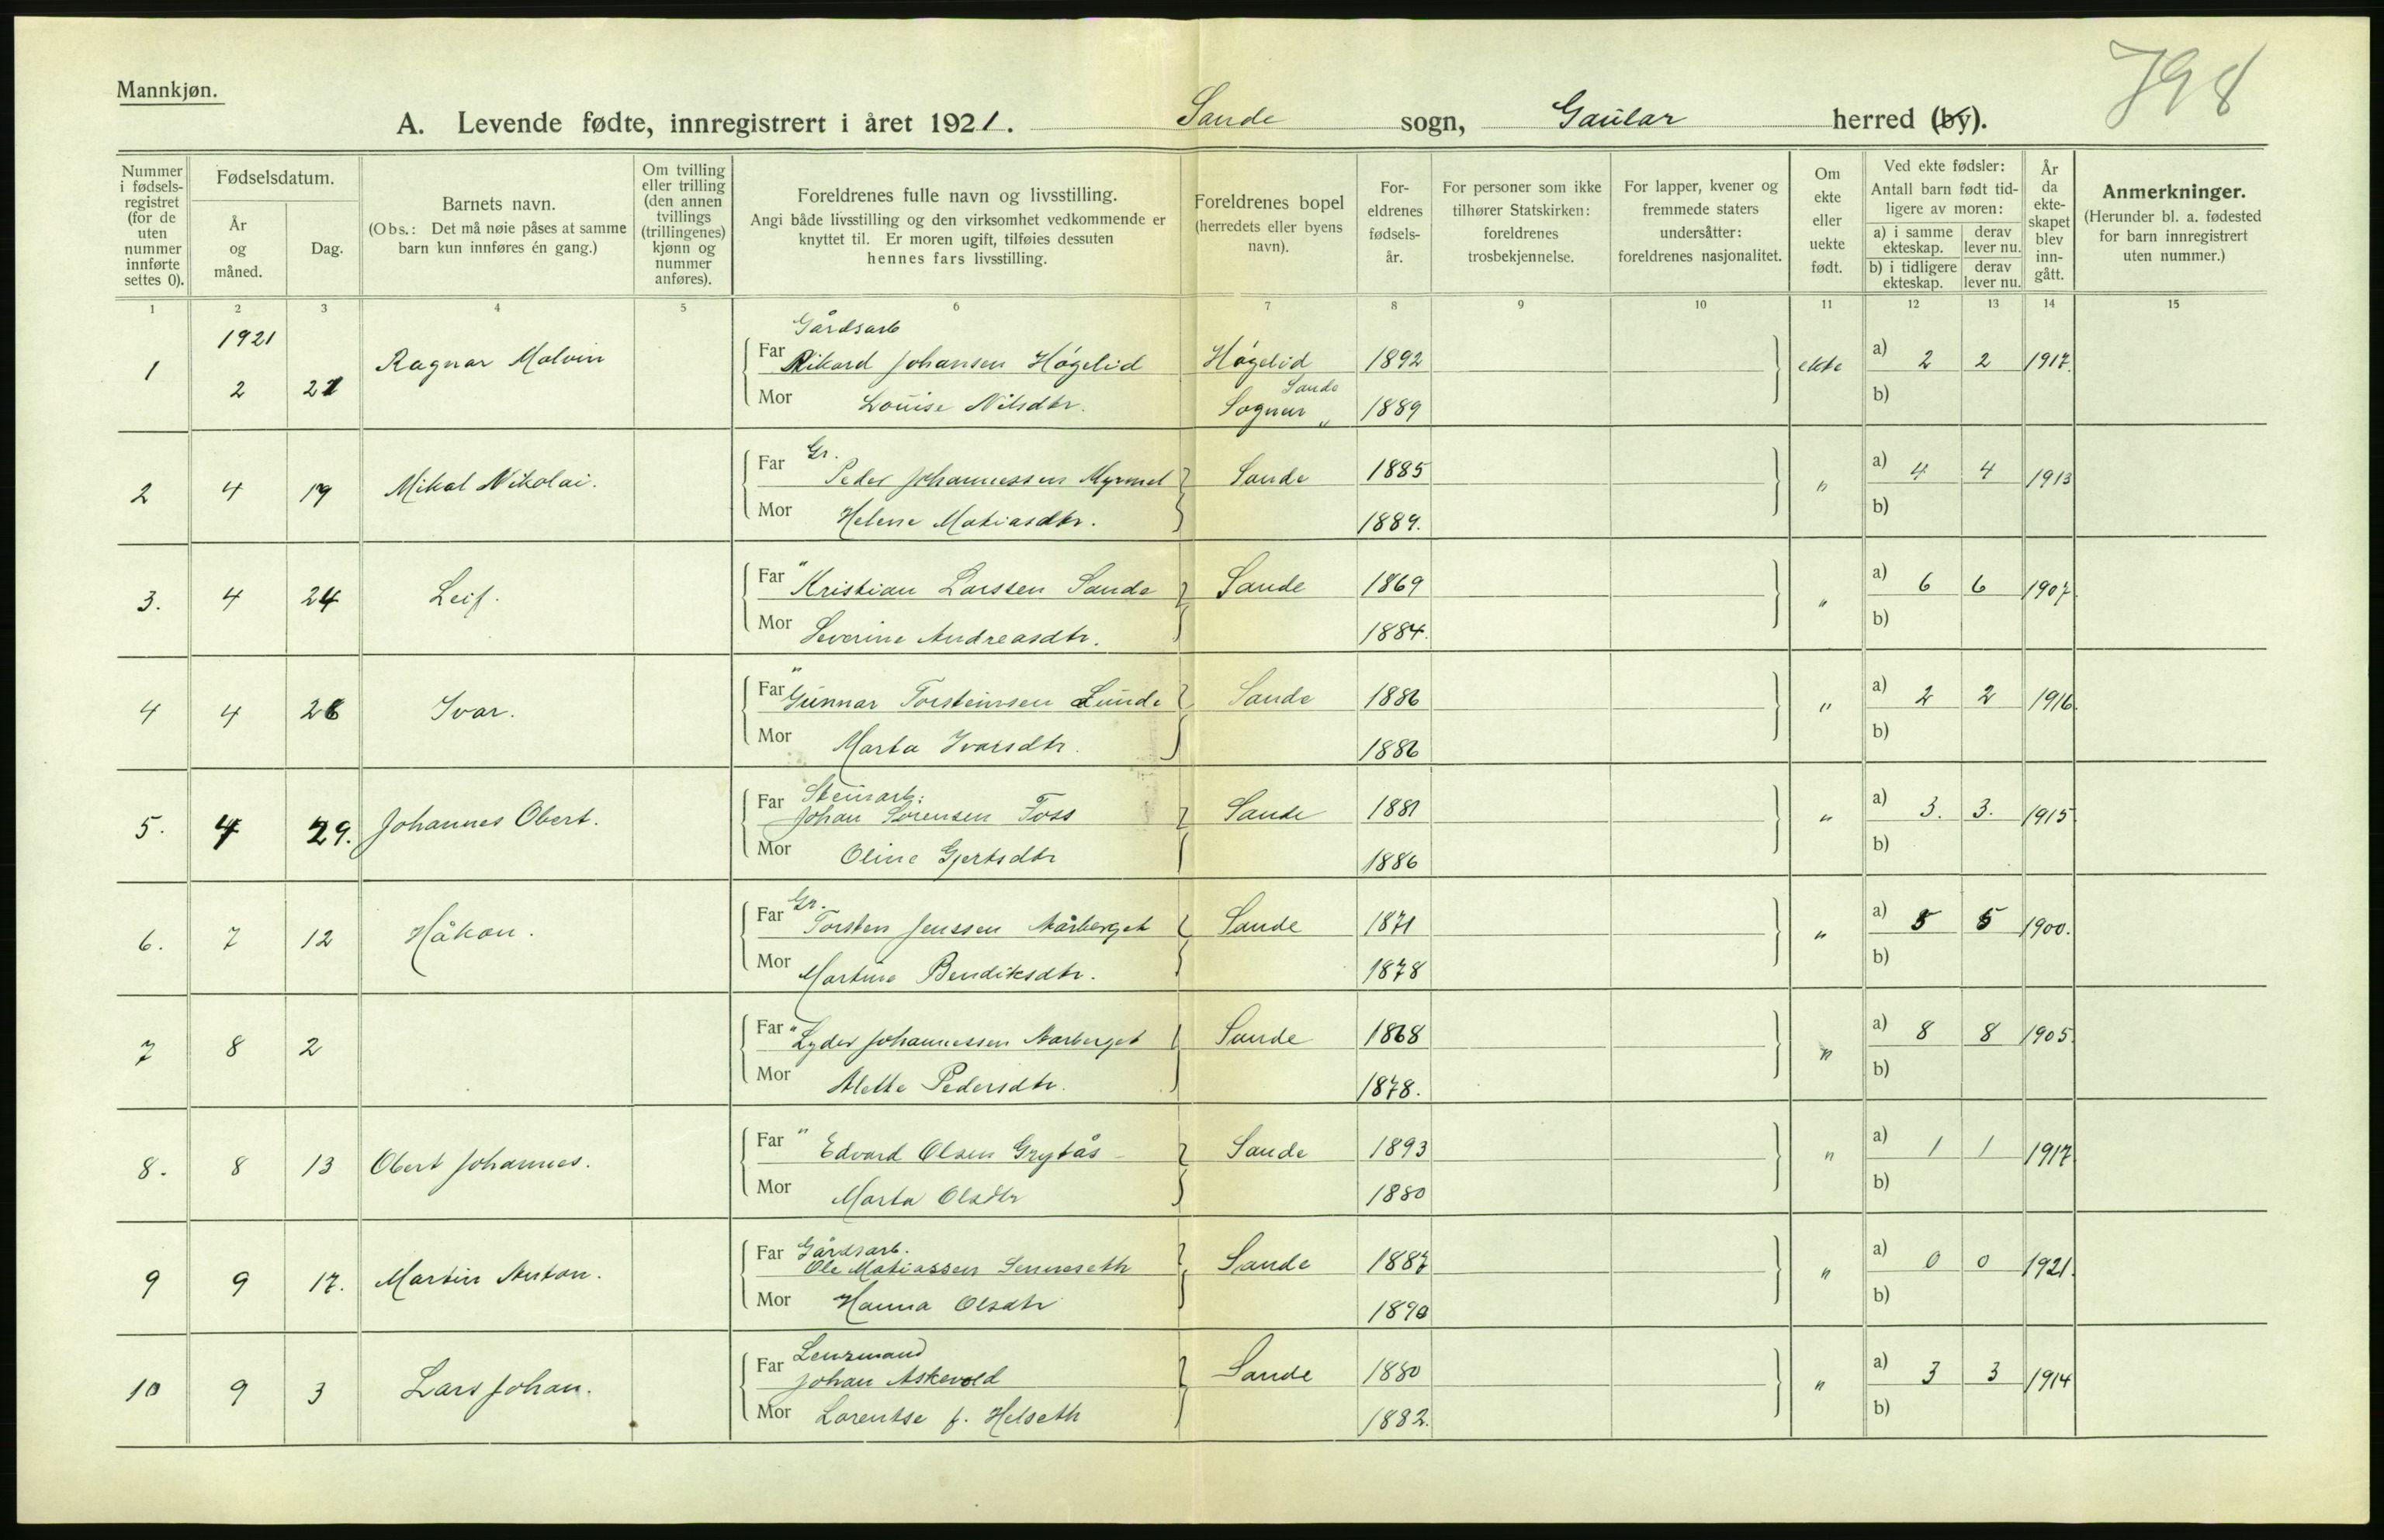 798
Mannkjøn.
A. Levende fødte, innregistrert i året 1921. Sande sogn, Gaular herred (by).
Nummer i fødsels-registret (for de uten nummer innførte settes 0).
Fødselsdatum.
År og måned.
Dag.
Barnets navn.
(Obs.: Det må nøie påses at samme barn kun innføres én gang.)
Om tvilling eller trilling (den annen tvillings (trillingenes) kjønn og nummer anføres).
Foreldrenes fulle navn og livsstilling.
Angi både livsstilling og den virksomhet vedkommende er knyttet til. Er moren ugift, tilføies dessuten hennes fars livsstilling.
Foreldrenes bopel (herredets eller byens navn).
For-eldrenes fødsels-år.
For personer som ikke tilhører Statskirken: foreldrenes trosbekjennelse.
For lapper, kvener og fremmede staters undersåtter: foreldrenes nasjonalitet.
Om ekte eller uekte født.
Ved ekte fødsler:
Antall barn født tid-ligere av moren:
a) i samme ekteskap. derav lever nu.
b) i tidligere ekteskap. derav lever nu.
År da ekte-skapet blev inn-gått.
Anmerkninger.
(Herunder bl. a. fødested for barn innregistrert uten nummer.)
1 2 3 4 5 6 7 8 9 10 11 12 13 14 15
1921
Gårdsarb
1 2 21 Ragnar Malvin Far Rikard Johansen Høgelid Høgelid Sande 1892 ekte a) 2 2 1917.
Mor Louise Nilsdtr. Sognar " 1889 b)
Gr.
2 4 19 Mikal Nikolai. Far Peder Johannessen Myrmel Sande 1885 " a) 4 4 1913
Mor Helene Matiasdtr. 1889. b)
3. 4 24 Leif. Far " Kristian Larssen Sande Sande 1869 " a) 6 6 1907
Mor Severine Andreasdtr. 1884. b)
4 4 26 Ivar. Far " Gunnar Torsteinsen Lunde Sande 1886 " a) 2 2 1916
Mor Marta Ivarsdtr. 1886 b)
Steinarb:
5. 4 29. Johannes Obert. Far Johan Sørensen Foss Sande 1881 " a) 3. 3. 1915
Mor Oline Gjertsdtr 1886 b)
Gr.
6. 7 12 Håkon. Far Torsten Jenssen Aarberget Sande 1871 " a) 5 5 1900.
Mor Martine Bendiksdtr. 1878 b)
7 8 2 Far " Lyder Johannessen Aarberget Sande 1868 " a) 8 8 1905.
Mor Alette Pedersdtr. 1878. b)
8. 8 13 Obert Johannes. Far " Edvard Olsen Grytås Sande 1893 " a) 1 1 1917
Mor Marta Olsdtr 1880 b)
Gårdsarb.
9 9 17. Martin Anton. Far Ole Matiassen Senneseth Sande 1887 " a) 0 0 1921.
Mor Hanna Olsdtr 1890 b)
Lensmand
10 9 3 Lars Johan. Far Johan Askevold Sande 1880 " a) 3 3 1914
Mor Lorentse f. Helseth 1882. b)